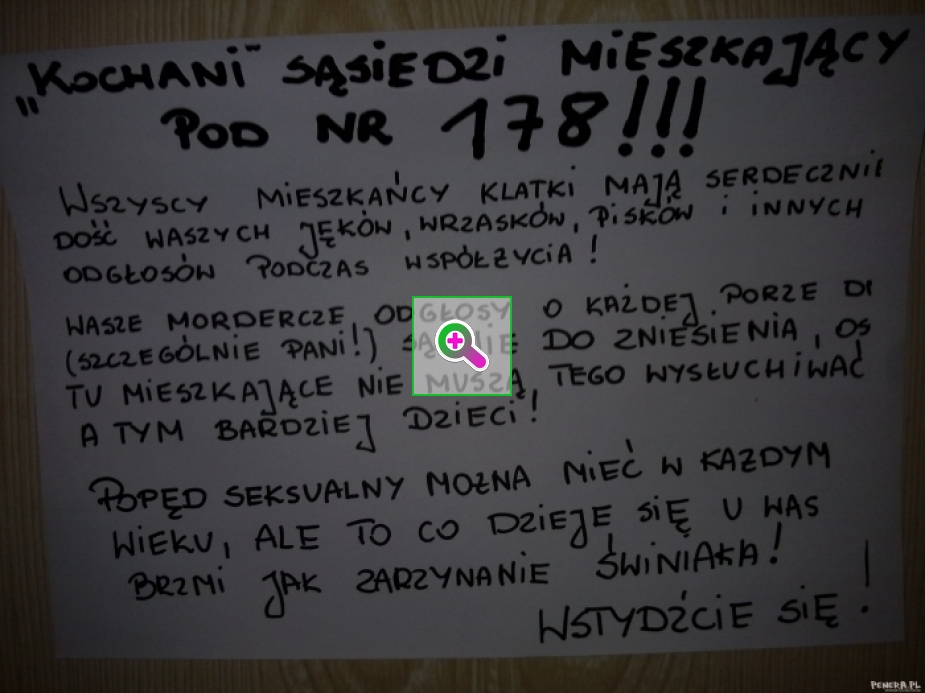 „KOCHANI" SĄSIEDZI MIESZKAJĄCY
POD NR 178!!!
WSZYSCY MIESZKAŃCY KLATKI MAJĄ SERDECZNIE
DOŚĆ WASZYCH JĘKÓW, WRZASKÓW, PISKÓW I INNYCH
ODGŁOSÓW PODCZAS WSPÓŁŻYCIA!
WASZE MORDERCZE ODGŁOSY O KAŻDEJ PORZE
(SZCZEGÓLNIE PANI!) SĄ NIE DO ZNIESIENIA,
TU MIESZKAJĄCE NIE MUSZĄ TEGO WYSŁUCHIWAĆ
A TYM BARDZIEJ DZIECI!
POPĘD SEKSUALNY MOŻNA MIEĆ W KAŻDYM
WIEKU, ALE TO CO DZIEJE SIĘ U WAS
BRZMI JAK ZARZYNANIE ŚWINIAKA!
WSTYDŹCIE SIĘ!
PENERA.PL